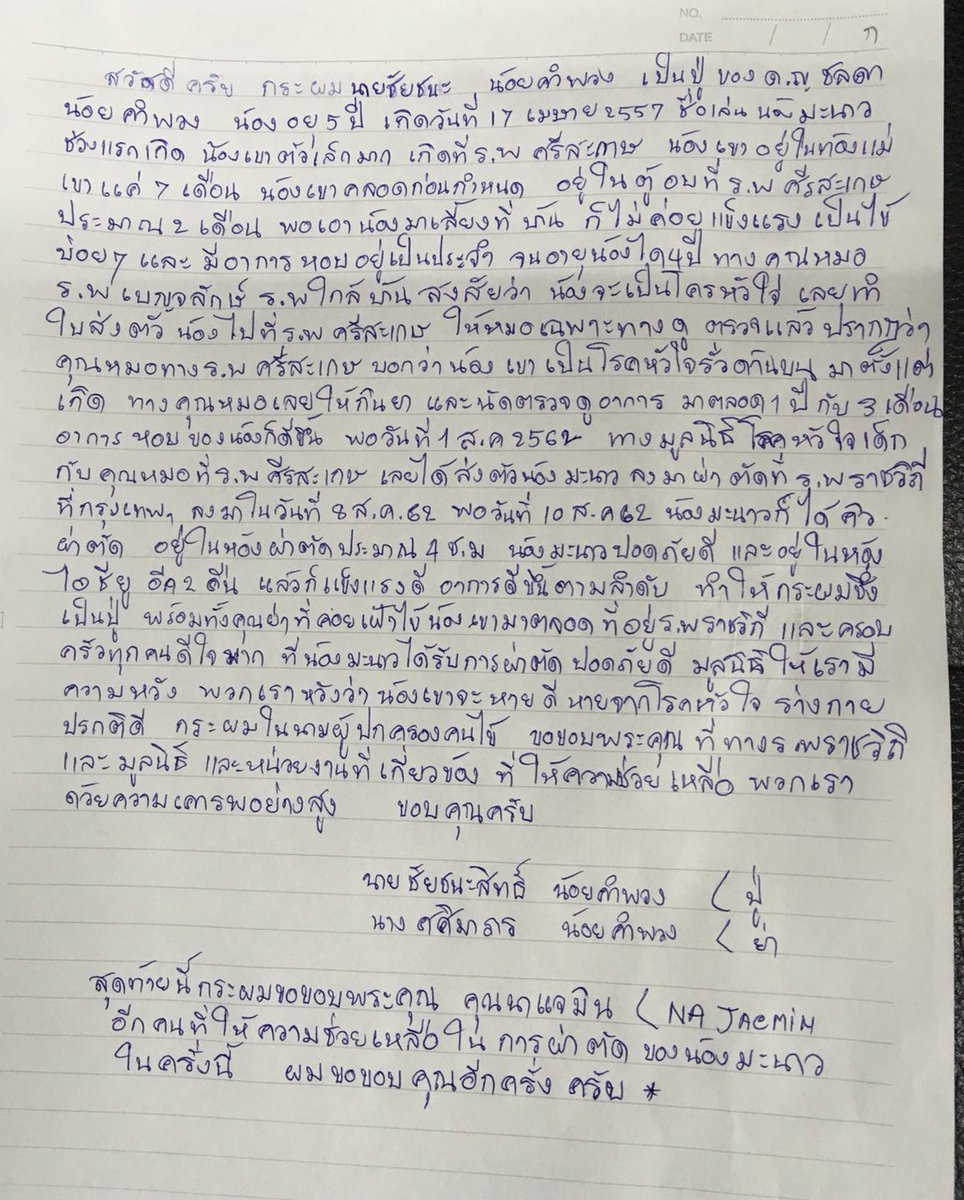 NO.
DATE / / ๅ
สวัสดี ครับ กระผม นายชัยชนะ น้อยคำพวง เป็นปู่ ของ ด.ญ ชลดา
น้อยคำพวง น้องอายุ 5 ปี เกิดวันที่ 17 เมษายน 2557 ชื่อเล่น น้องมะนาว
ช่วงแรกเกิด น้องเขาตัวเล็กมาก เกิดที่ ร.พ ศรีสะเกษ น้องเขาอยู่ในท้องแม่
เขาแค่ 7 เดือน น้องเขาคลอดก่อนกำหนด อยู่ในตู้อบที่ ร.พ ศรีสะเกษ
ประมาณ 2 เดือน พอเอาน้องมาเลี้ยงที่บ้าน ก็ไม่ค่อยแข็งแรง เป็นไข้
บ่อยๆ และ มีอาการ หอบอยู่เป็นประจำ จนอายุน้องได้ 4 ปี ทางคุณหมอ
ร.พ เบญจลักษ์ ร.พ ใกล้บ้าน สงสัยว่า น้องจะเป็นโครหัวใจ เลยทำ
ใบส่งตัว น้องไปที่ ร.พ ศรีสะเกษ ให้หมอเฉพาะทางดู ตรวจแล้ว ปรากฏว่า
คุณหมอทาง ร.พ ศรีสะเกษ บอกว่าน้อง เขาเป็นโรคหัวใจรั่วด้านบน มาตั้งแต่
เกิด ทางคุณหมอเลยให้กินยา และนัดตรวจดูอาการ มาตลอด 1 ปี กับ 3 เดือน
อาการ หอบของน้องก็ดีขึ้น พอวันที่ 1 ส.ค 2562 ทางมูลนิธิ โรคหัวใจเด็ก
กับคุณหมอที่ ร.พ ศรีสะเกษ เลยได้ส่งตัวน้องมะนาว ลงมาผ่าตัดที่ ร.พ ราชวิถี
ที่กรุงเทพๆ ลงมาในวันที่ 8 ส.ค.62 พอวันที่ 10 ส.ค 62 น้องมะนาวก็ได้คิว
ผ่าตัด อยู่ในห้องผ่าตัดประมาณ 4 ช.ม น้องมะนาวปอดภัยดี และอยู่ในห้อง
ไอ ซียู อีก 2 คืน แล้วก็แข็งแรงดี อาการดีขึ้นตามลำดับ ทำให้กระผมซึ่ง
เป็นปู่ พร้อมทั้งคุณย่าที่ค่อยเฝ้าไข้น้องเขามาตลอด ที่อยู่ ร.พ ราชวิถี และครอบ
ครัวทุกคนดีใจมาก ที่น้องมะนาวได้รับการผ่าตัด ปอดภัยดี มูลนิธิให้เรามี
ความหวัง พวกเราหวังว่าน้องเขาจะหายดี หายจากโรคหัวใจ ร่างกาย
ปรกติดี กระผมในนามผู้ปกครองคนไข้ ขอขอบพระคุณ ที่ทาง ร.พ ราชวิถี
และ มูลนิธิ และหน่วยงานที่เกี่ยวข้อง ที่ให้ความช่วยเหลือ พวกเรา
ด้วยความเคารพอย่างสูง ขอบคุณครับ
นาย ชัยชนะสิทธิ์ น้อยคำพวง ( ปู่
นาง ศศิมาภร น้อยคำพวง ( ย่า
สุดท้ายนี้กระผมขอขอบพระคุณ คุณนาแจมิน ( NA JAEMIN
อีกคนที่ให้ความช่วยเหลือใน การผ่าตัด ของน้องมะนาว
ในครั้งนี้ ผมขอขอบคุณอีกครั้ง ครับ *